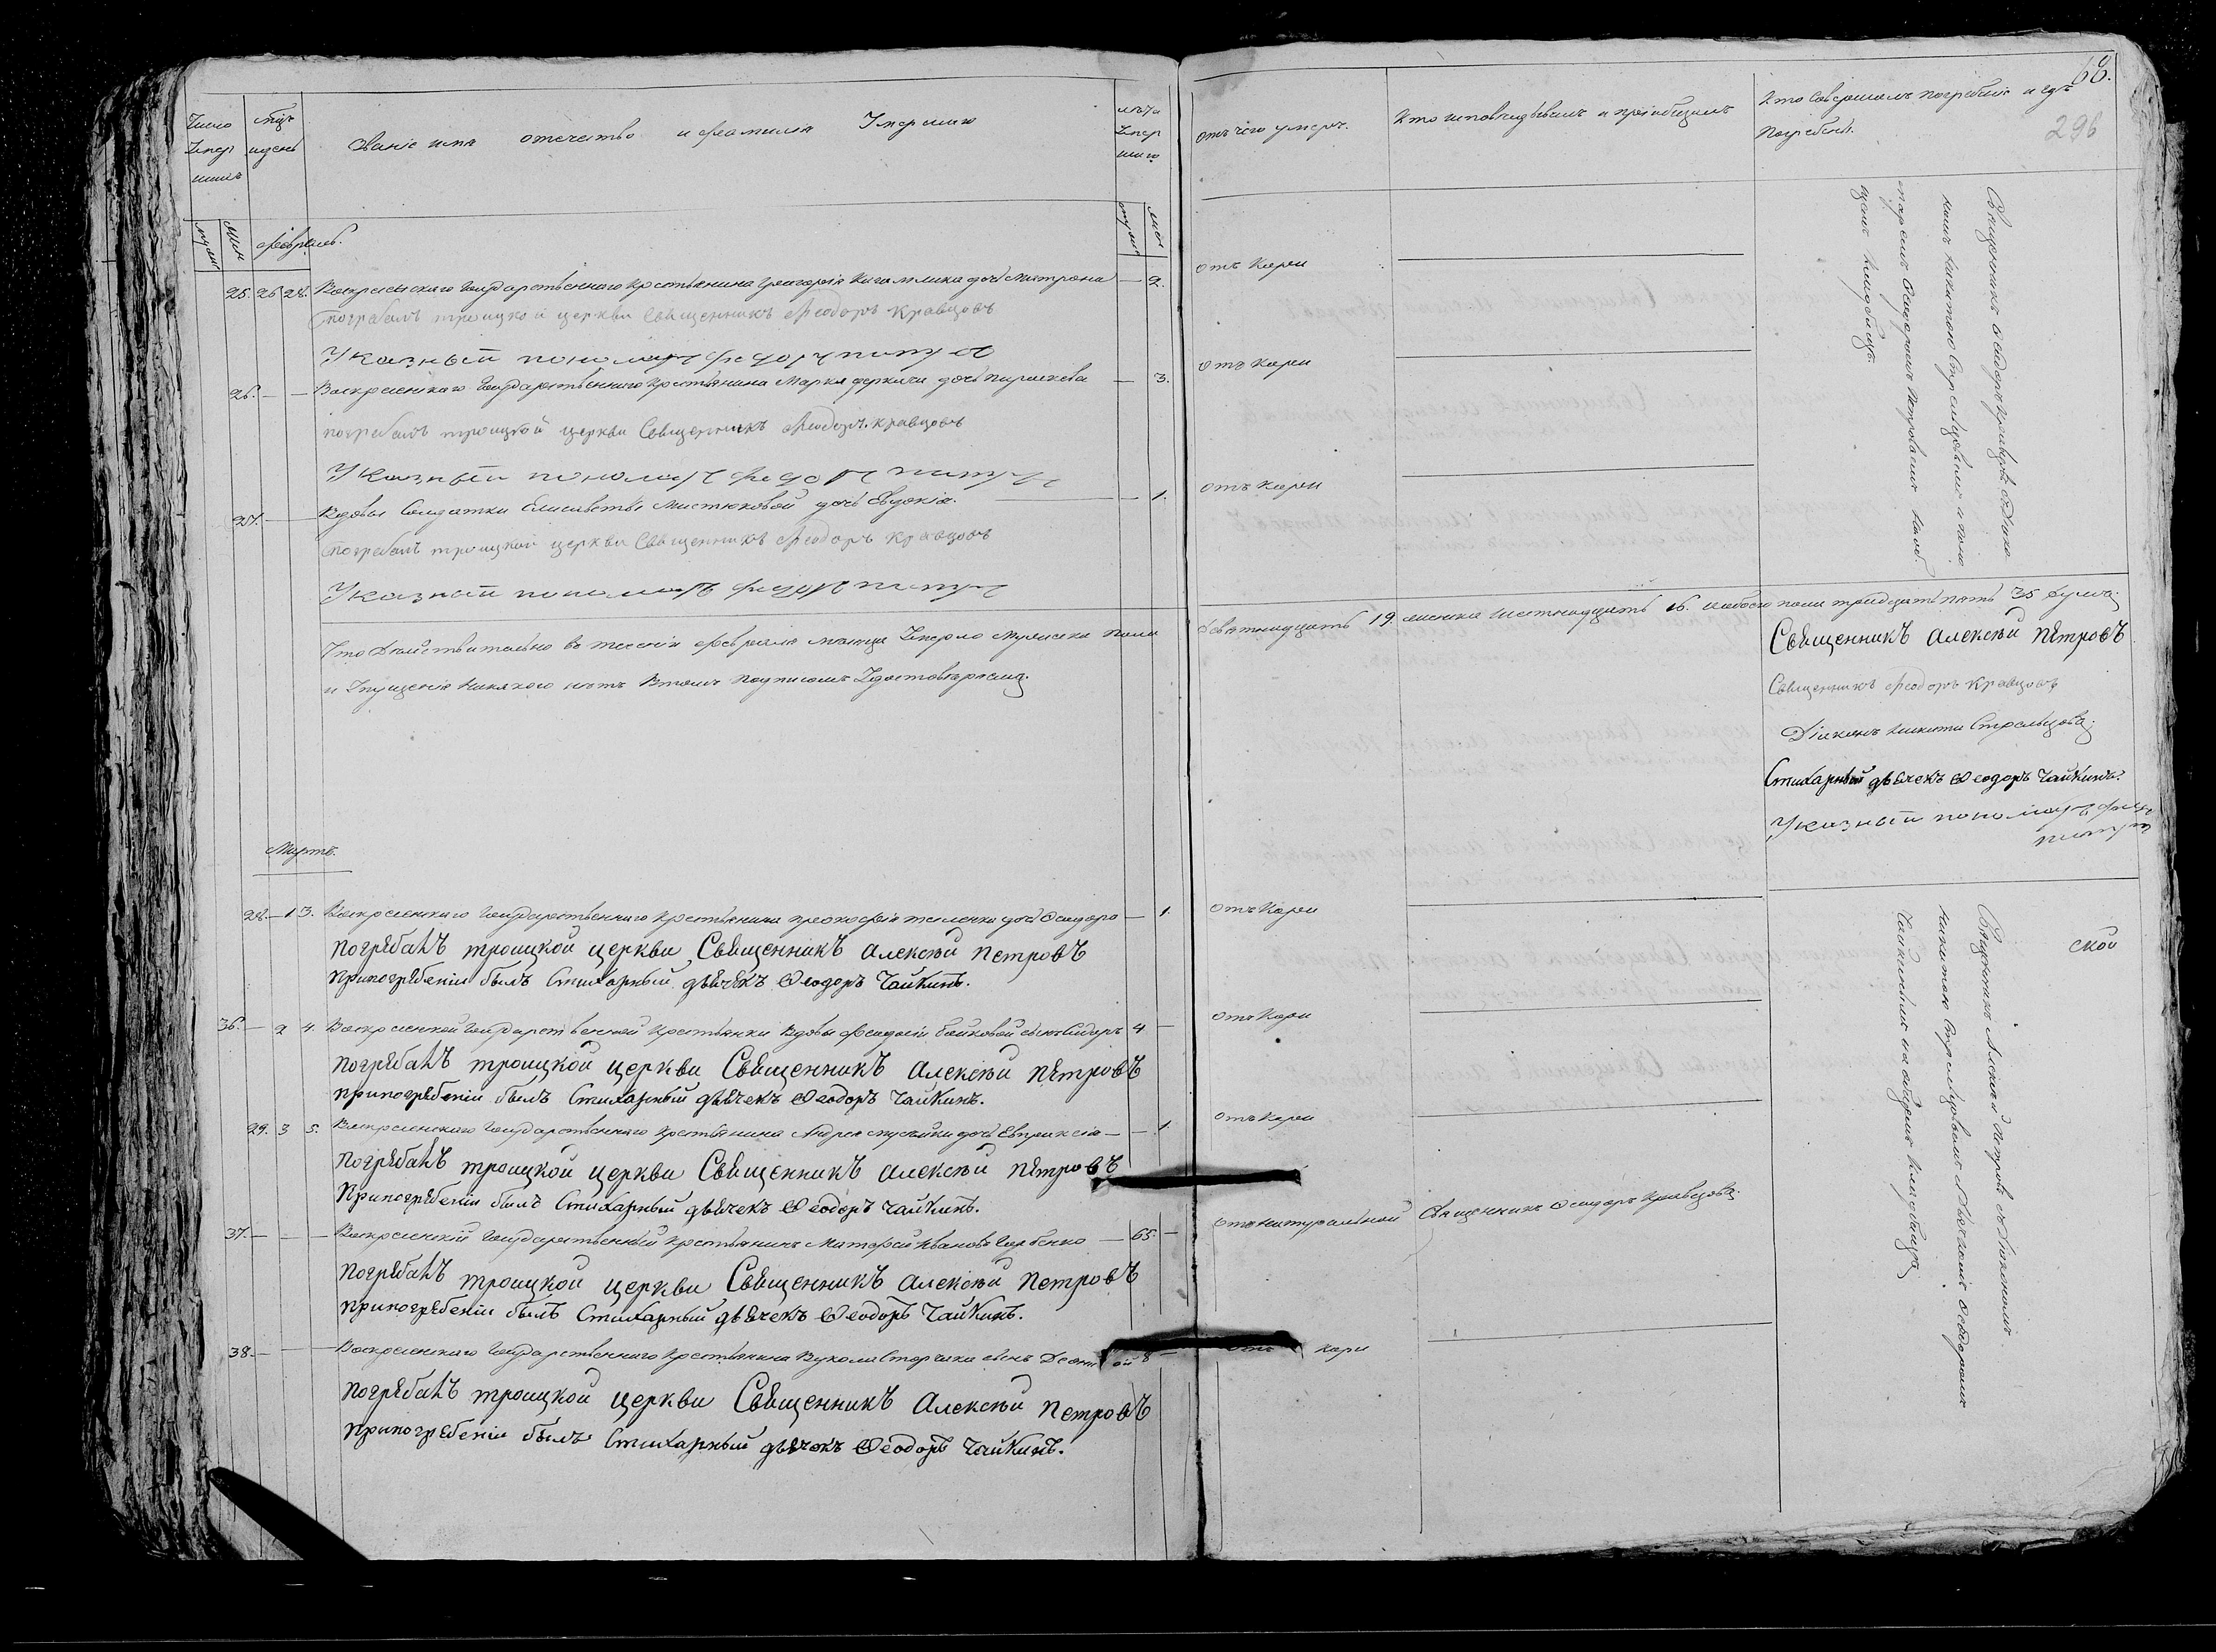 68.
296
Число умершихъ
мѣцъ и день
Званіе имя отечество и фамилія Умершаго
лѣта Умершаго
отъ чего умеръ.
Кто исповѣдывалъ и пріобщалъ
Кто Совершалъ погребеніе и гдѣ погребены.
Февраль.
25. 26 28. Воскресенскаго Государственнаго крестьянина Григорія дочь Матрона — 2.
отъ Кори
погребалъ троицкой церкви Священникъ Феодоръ Кравцовъ
Указный пономарь федоръ
26. — — Воскресенскаго Государственнаго крестьянина Марка деркача дочь параскева — 3.
отъ кори
погребалъ троицкой церкви Священникъ Феодоръ Кравцовъ
Указный пономарь федоръ
27. — Вдовы Солдатки Елисаветы Мистюковой дочь Евдокія. — 1.
отъ кори
погребалъ троицкой церкви Священникъ Феодоръ Кравцовъ
Указный пономарь федоръ
Священникъ Феодоръ Кравцовъ
Что Дѣйствительно въ теченіи Февраля месяца Умерло Мужеска пола Девятнадцать 19 женска Шестнадцать 16. обоего пола тридцать пять 35 душъ
и Упущенія никакого нетъ Втомъ подписомъ Удостоверяемъ.
Священникъ алексѣй петровъ
Священникъ Феодоръ Кравцовъ
Діаконъ никита Стрельцовъ
Стихарный дьячекъ Ѳеодоръ Чайкинъ.
Указный пономарь
Мартъ.
28. — 1 3. Воскресенскаго Государственнаго крестьянина прокофія дочь — 1.
отъ Кори
погрѣбалъ троицкой церкви Священникъ алексѣй петровъ
припогрѣбеніи былъ Стихарный дьячекъ Ѳеодоръ Чайкинъ.
36. — 2 4. Воскресенской Государственной крестьянки Вдовы Феодосіи бойковой сынъ Сидоръ 4 —
отъ Кори
погрѣбалъ троицкой церкви Священникъ алексѣй петровъ
припогрѣбеніи былъ Стихарный дьячекъ Ѳеодоръ Чайкинъ.
29. 3 5. Воскресенскаго Государственнаго крестьянина Андрея дочь Евпраксія — — 1.
отъ Кори
погрѣбалъ троицкой церкви Священникъ алексѣй петровъ
припогрѣбеніи былъ Стихарный дьячекъ Ѳеодоръ Чайкинъ.
37. — — — Воскресенскій Государственный крестьянинъ Матфей Ивановъ Горбенко — 65 —
отъ натуральной
Священникъ Ѳеодоръ Кравцовъ
погрѣбалъ троицкой церкви Священникъ алексѣй петровъ
припогрѣбеніи былъ Стихарный дьячекъ Ѳеодоръ Чайкинъ.
38. — — Воскресенскаго Государственнаго крестьянина Вукола сынъ 8 —
отъ кори
погрѣбалъ троицкой церкви Священникъ Алексѣй петровъ
припогрѣбеніи былъ Стихарный дьячекъ Ѳеодоръ Чайкинъ.
Священникъ Алексѣй Петровъ съ Діакономъ
Никитою Стрельцовымъ Дьячкомъ Ѳеодоромъ
Чайкинымъ на общемъ кладбищѣ